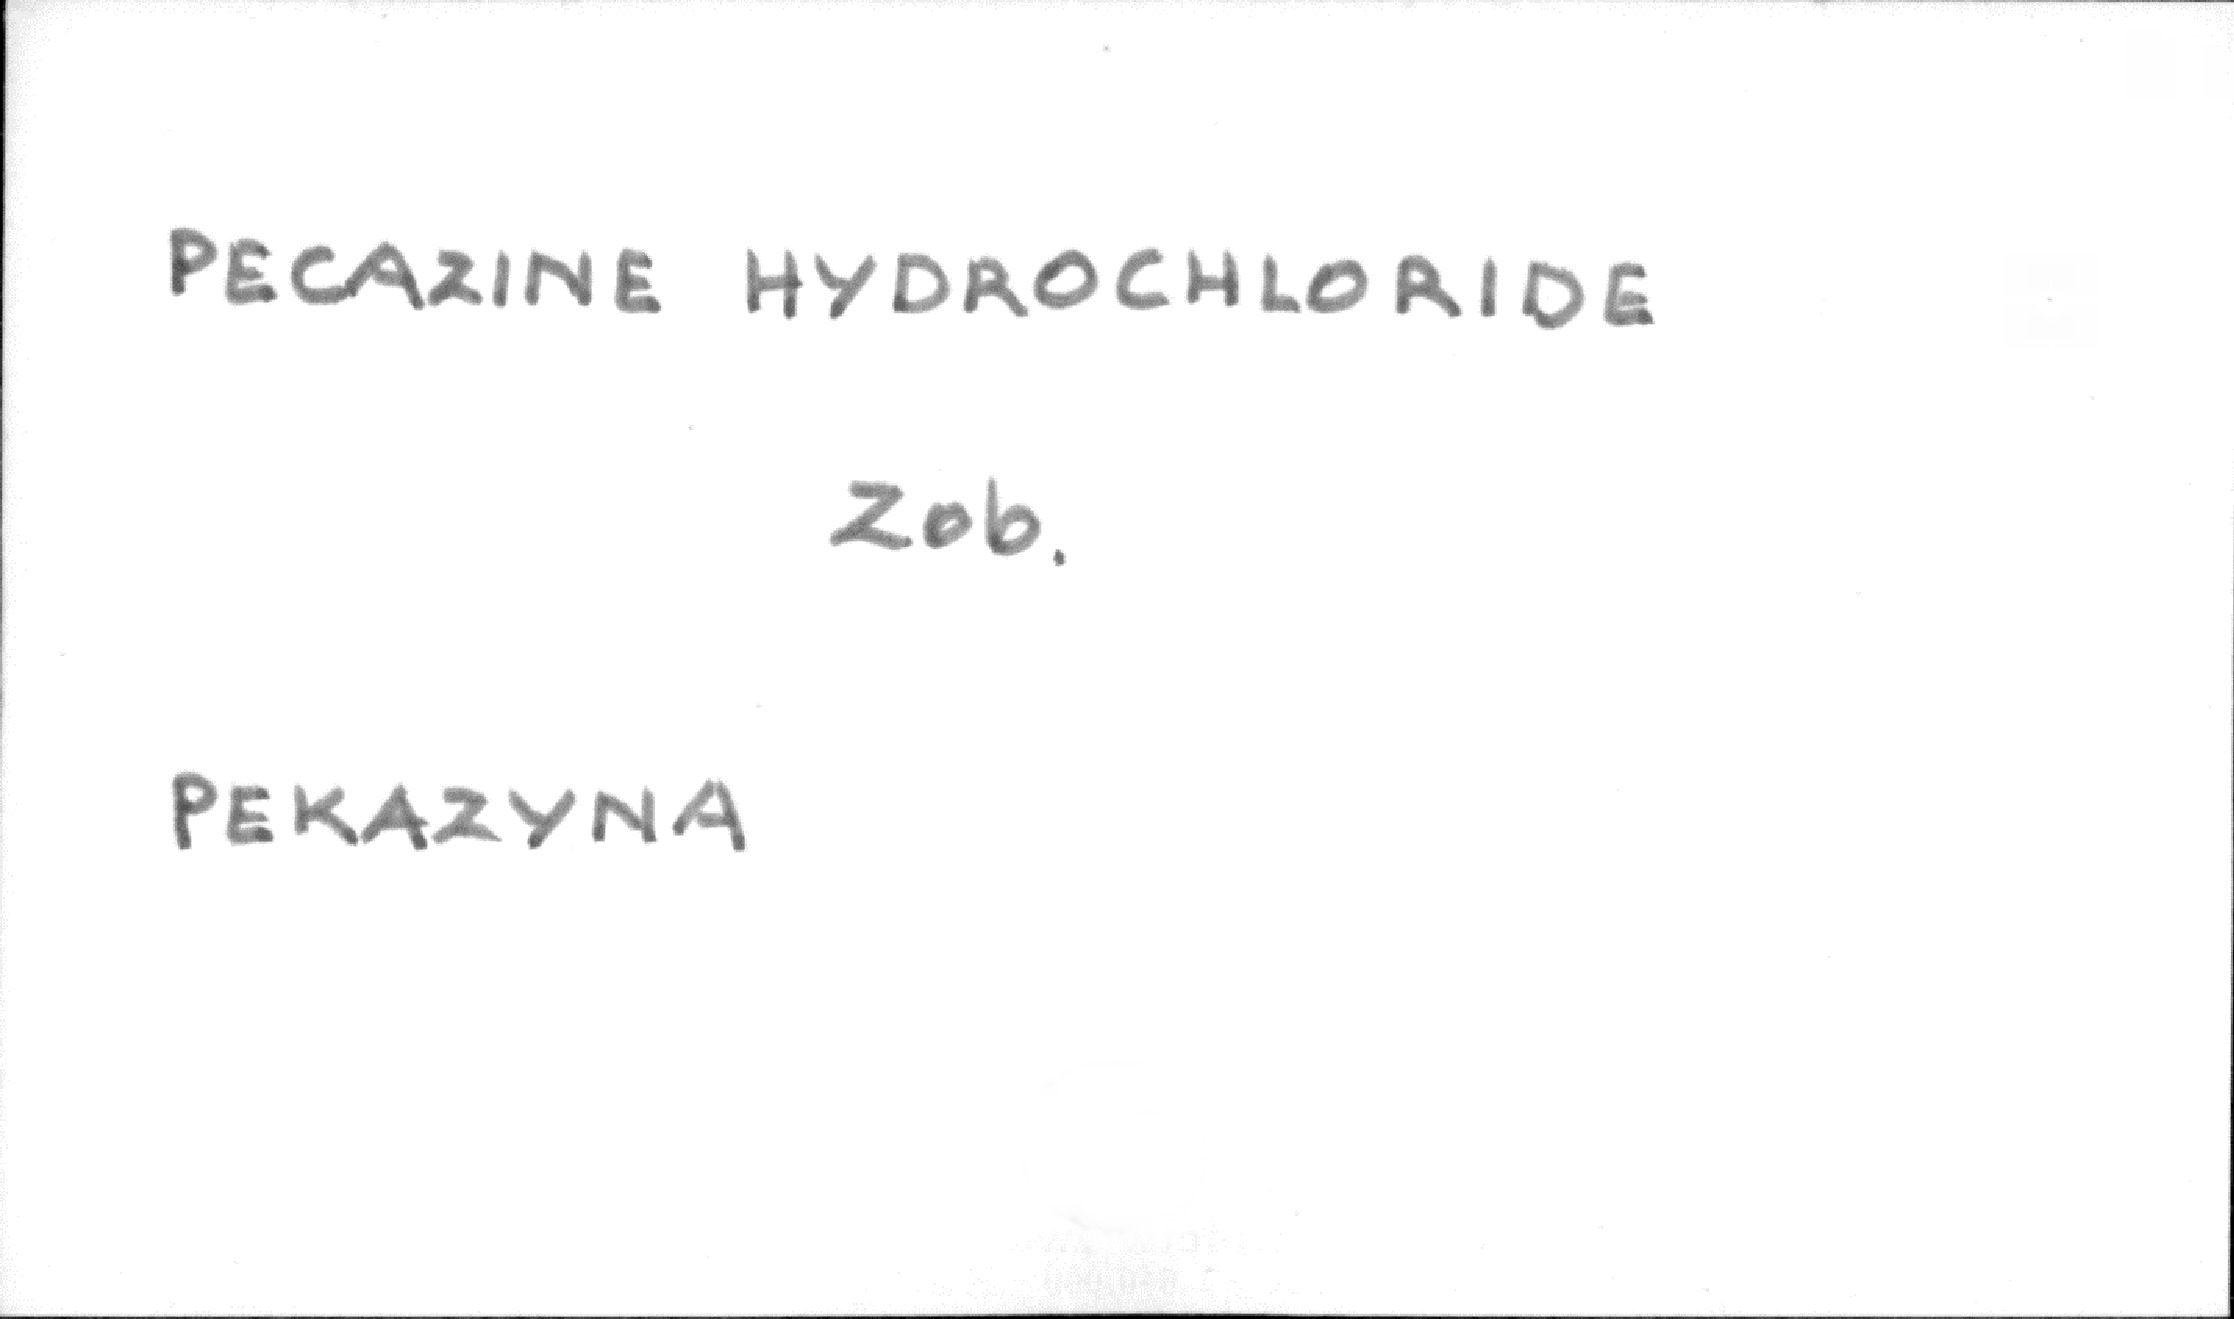 PECAZINE HYDROCHLORIDE
Zob.
PEKAZYNA